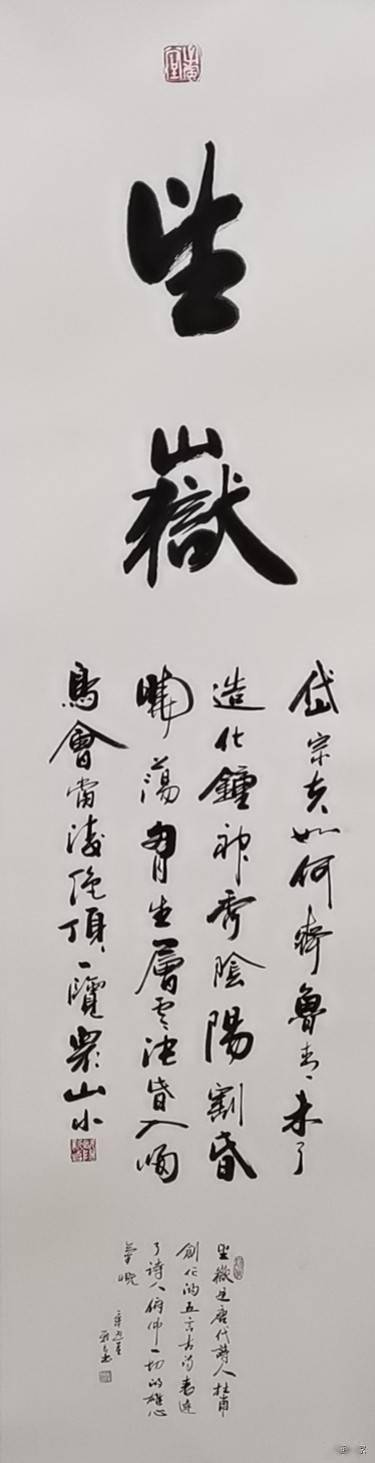 望
嶽
岱宗夫如何齊魯青未了
造化鍾神秀陰陽割昏
曉蕩胷生層雲決眥入歸
鳥會當凌絕頂一覽衆山小
望嶽是唐代詩人杜甫
創作的五言古詩表達
了詩人俯仰一切的雄心
氣概
辛丑